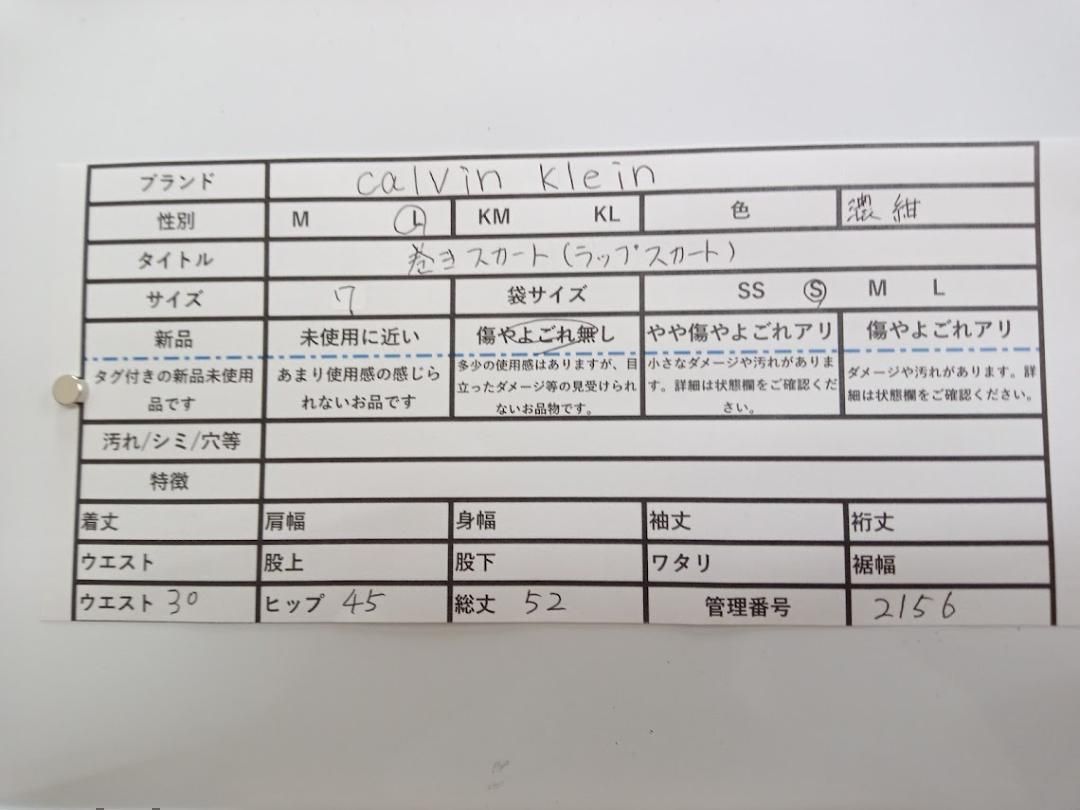 ブランド calvin klein
性別 M L KM KL 色 濃紺
タイトル 巻きスカート(ラップスカート)
サイズ 7 袋サイズ SS S M L
新品 未使用に近い 傷やよごれ無し やや傷やよごれアリ 傷やよごれアリ
タグ付きの新品未使用品です
あまり使用感の感じられないお品です
多少の使用感はありますが、目立ったダメージ等の見受けられないお品物です。
小さなダメージや汚れがあります。詳細は状態欄をご確認ください。
ダメージや汚れがあります。詳細は状態欄をご確認ください。
汚れ/シミ/穴等
特徴
着丈 肩幅 身幅 袖丈 裄丈
ウエスト 股上 股下 ワタリ 裾幅
ウエスト 30 ヒップ 45 総丈 52 管理番号 2156